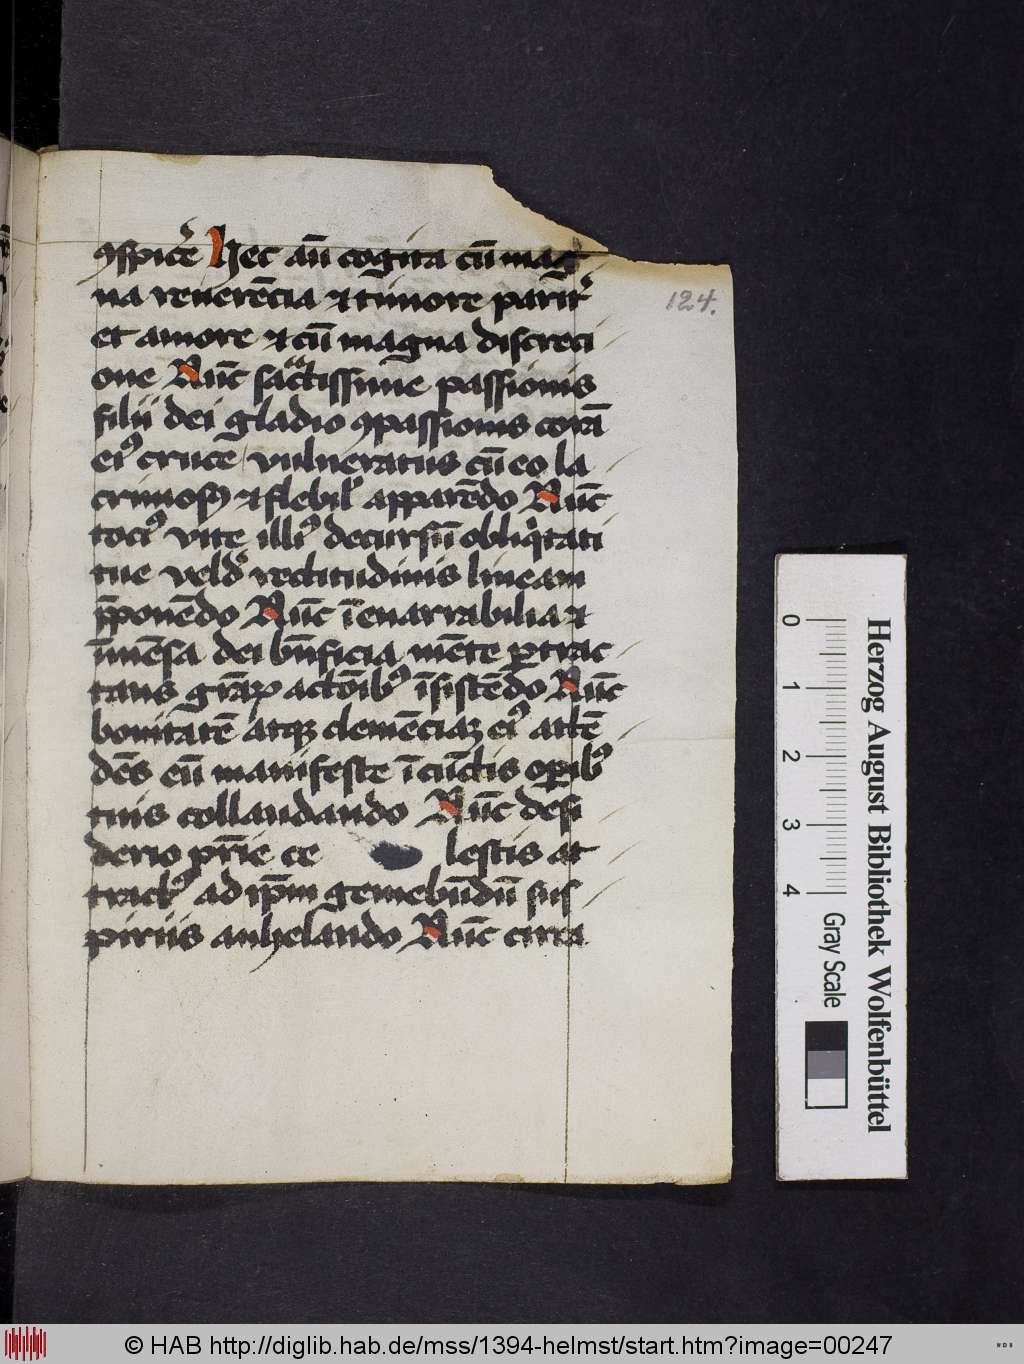 ꝯspicẽ Hec aũ cogita cũ mag
na reuerẽcia ⁊ timore parit᷑
et amore ⁊ cũ magna discreci
one Nũc sacͣtissime passionis
filii dei gladio ꝯpassionis corã
eiꝰ cruce vulneratus cũ eo la
crimosꝰ ⁊ flebil᷑ apparẽdo Nũc
tociꝰ vite illiꝰ decursũ obliqͥtati
tue veld᷑ rectitudinis lineam
p̃ponẽdo Nũc ĩenarrabilia ⁊
ĩmẽsa dei bñficia mẽte ꝑtrac
tans gr̃aꝝ actõibꝰ ĩsistẽdo Nũc
bonitatẽ atqꝫ clemẽciaꝫ eiꝰ attẽ
dẽs eũ manifeste ĩ cũctis oꝑibꝰ
tuis collaudando Nũc desi
derio pr̃ie ce lestis at
tract᷑ ad ip̃m gemebũdũ sus
piriis anhelando Nũc circa
124.
Herzog August Bibliothek Wolfenbüttel
0 1 2 3 4 Gray Scale
© HAB http://diglib.hab.de/mss/1394-helmst/start.htm?image=00247